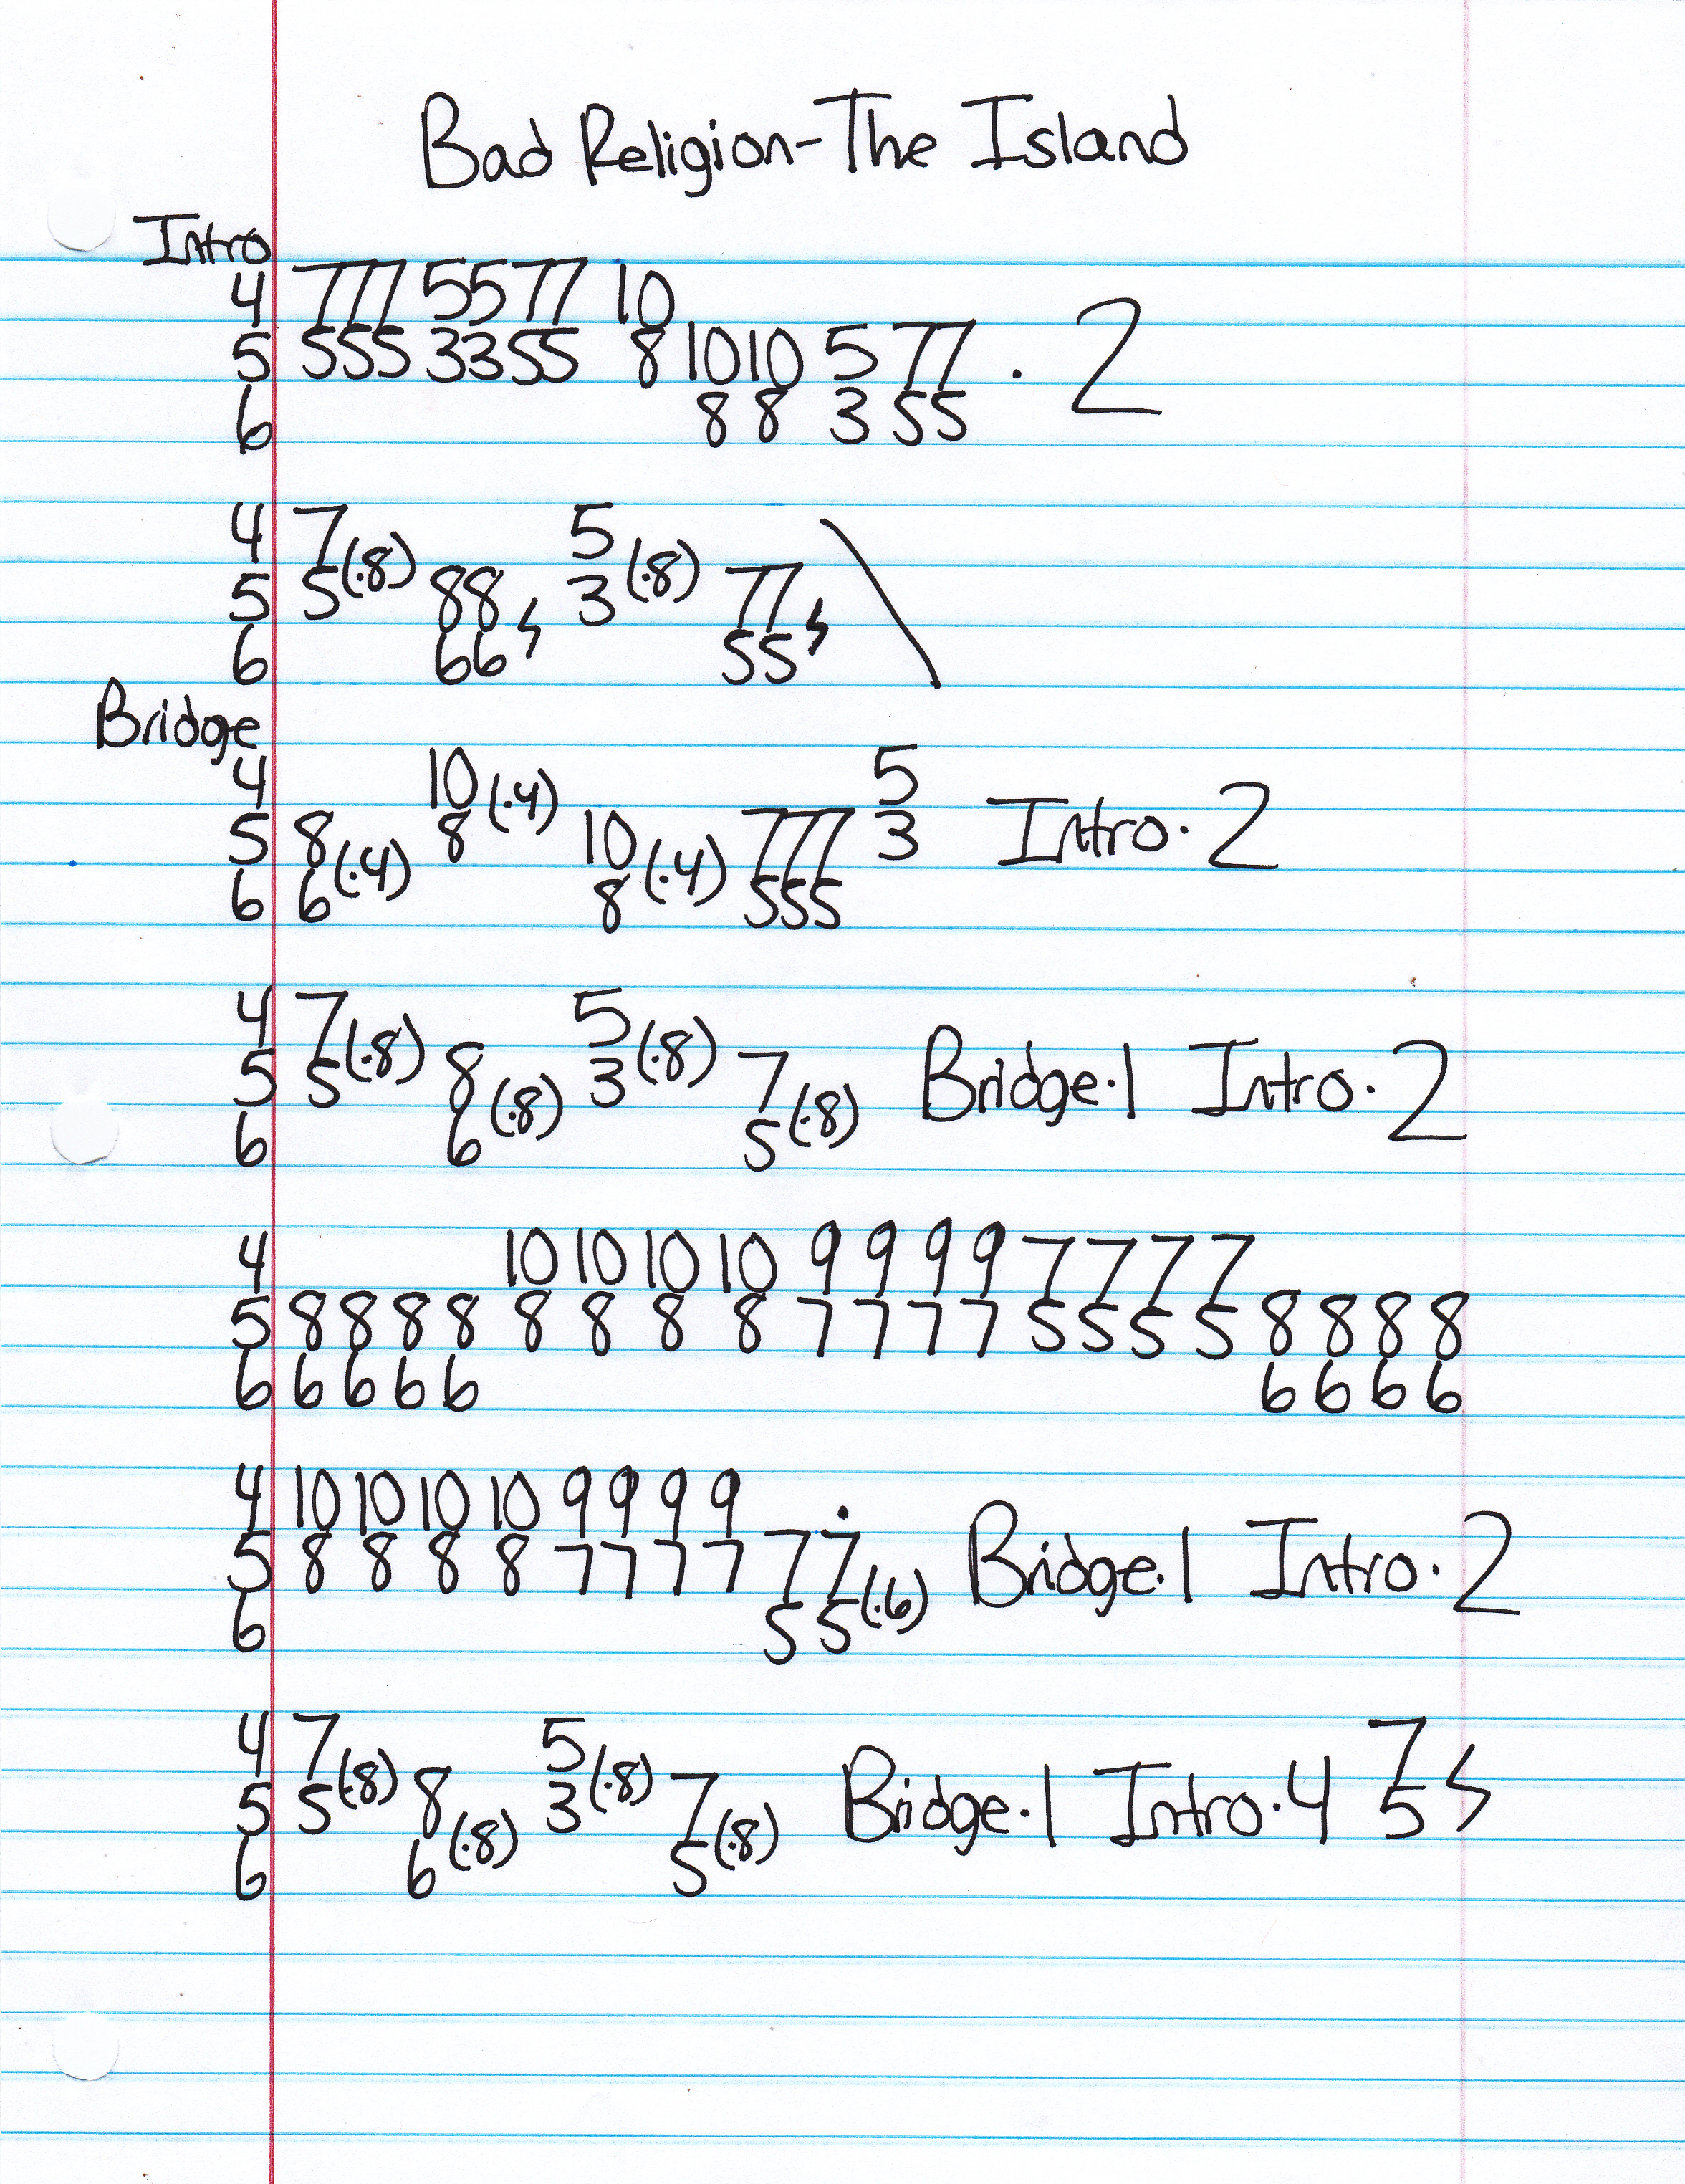 Bad Religion-The Island
Intro
4 777 55 77 10
5 555 33 55 8 10 10 5 77 · 2
6 8 8 3 55
4 7 5
5 5 (·8) 88 ϟ 3 (·8) 77 ϟ \
6 66 55
Bridge
4 10 (·4) 5
5 8 (·4) 8 10 (·4) 777 3 Intro · 2
6 6 8 555
4 7 5
5 5 (·8) 8 (·8) 3 (·8) 7 (·8) Bridge · 1 Intro · 2
6 6 5
4 10 10 10 10 9 9 9 9 7 7 7 7
5 8 8 8 8 8 8 8 8 7 7 7 7 5 5 5 5 8 8 8 8
6 6 6 6 6 6 6 6 6
4 10 10 10 10 9 9 9 9
5 8 8 8 8 7 7 7 7 7 7̇ (·6) Bridge · 1 Intro · 2
6 5 5
4 7 5 7
5 5 (·8) 8 (·8) 3 (·8) 7 (·8) Bridge · 1 Intro · 4 5 ϟ
6 6 5